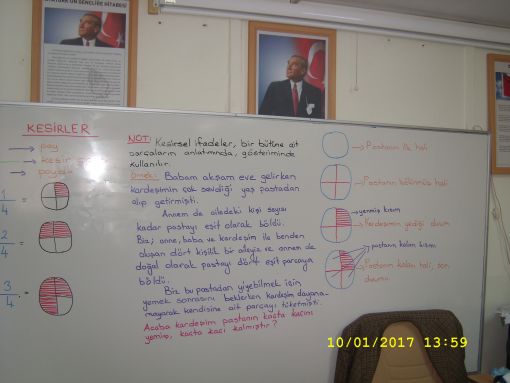 ATATÜRK'ÜN GENÇLİĞE HİTABESİ
KESİRLER
pay
kesir
payda
1/4
2/4
3/4
NOT: Kesirsel ifadeler, bir bütüne ait
parçaların anlatımında, gösteriminde
kullanılır.
Örnek: Babam akşam eve gelirken
kardeşimin çok sevdiği yaş pastadan
alıp getirmişti.
Annem de ailedeki kişi sayısı
kadar pastayı eşit olarak böldü.
Biz; anne, baba ve kardeşim ile benden
oluşan dört kişilik bir aileyiz ve annem de
doğal olarak pastayı dört eşit parçaya
böldü.
Biz bu pastadan yiyebilmek için
yemek sonrasını beklerken kardeşim dayana-
mayarak kendisine ait parçayı tüketmişti.
Acaba kardeşim pastanın kaçta kaçını
yemiş, kaçta kaçı kalmıştır?
Pastanın ilk hali
Pastanın bölünmüş hali
yenmiş kısım
Kardeşimin yediği durum
pastanın kalan kısmı
Pastanın kalan hali, son
durumu
10/01/2017 13:59